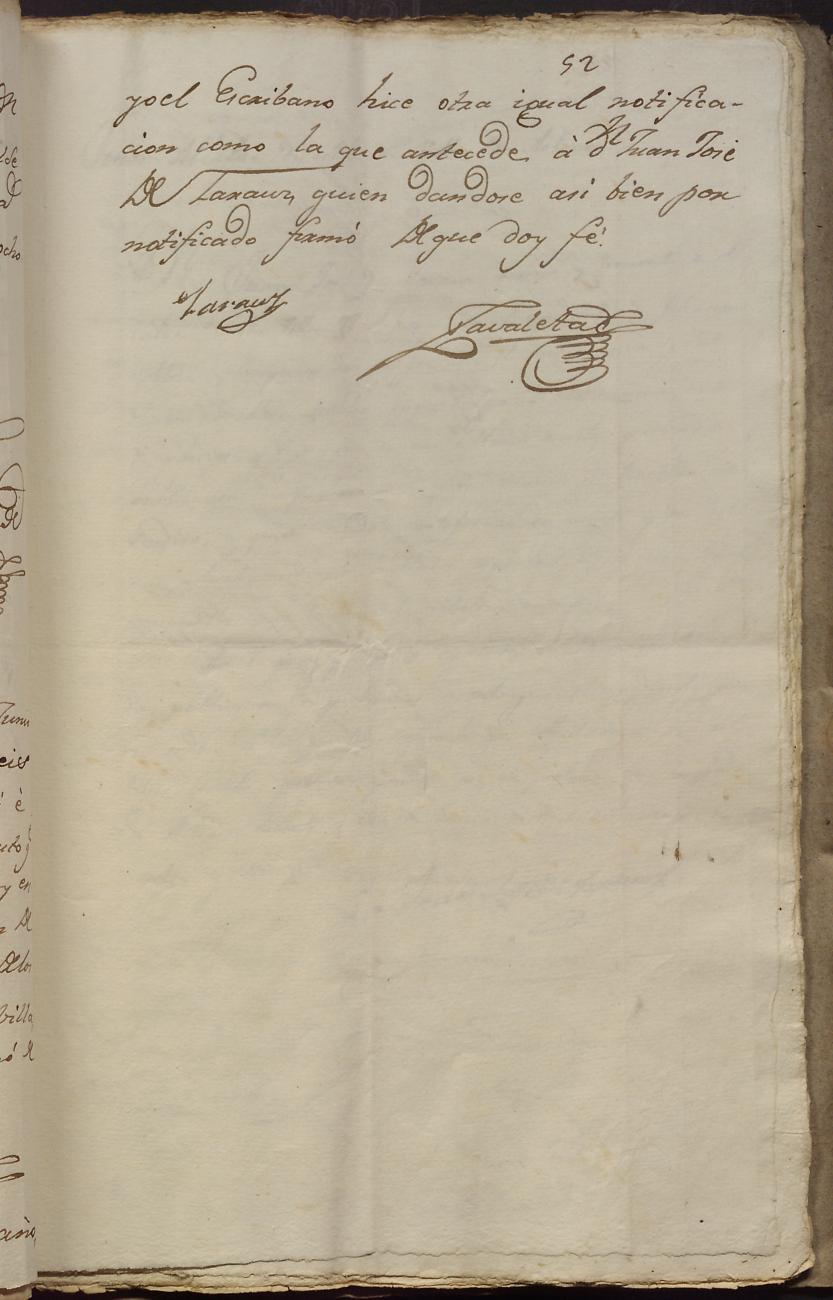 52
yo el Escribano hice otra igual notifica-
cion como la que antecede, à Dn Juan José
De Zarauz, quien dandose asi bien por
notificado firmó De que doy fé.
Zarauz
Zavaleta